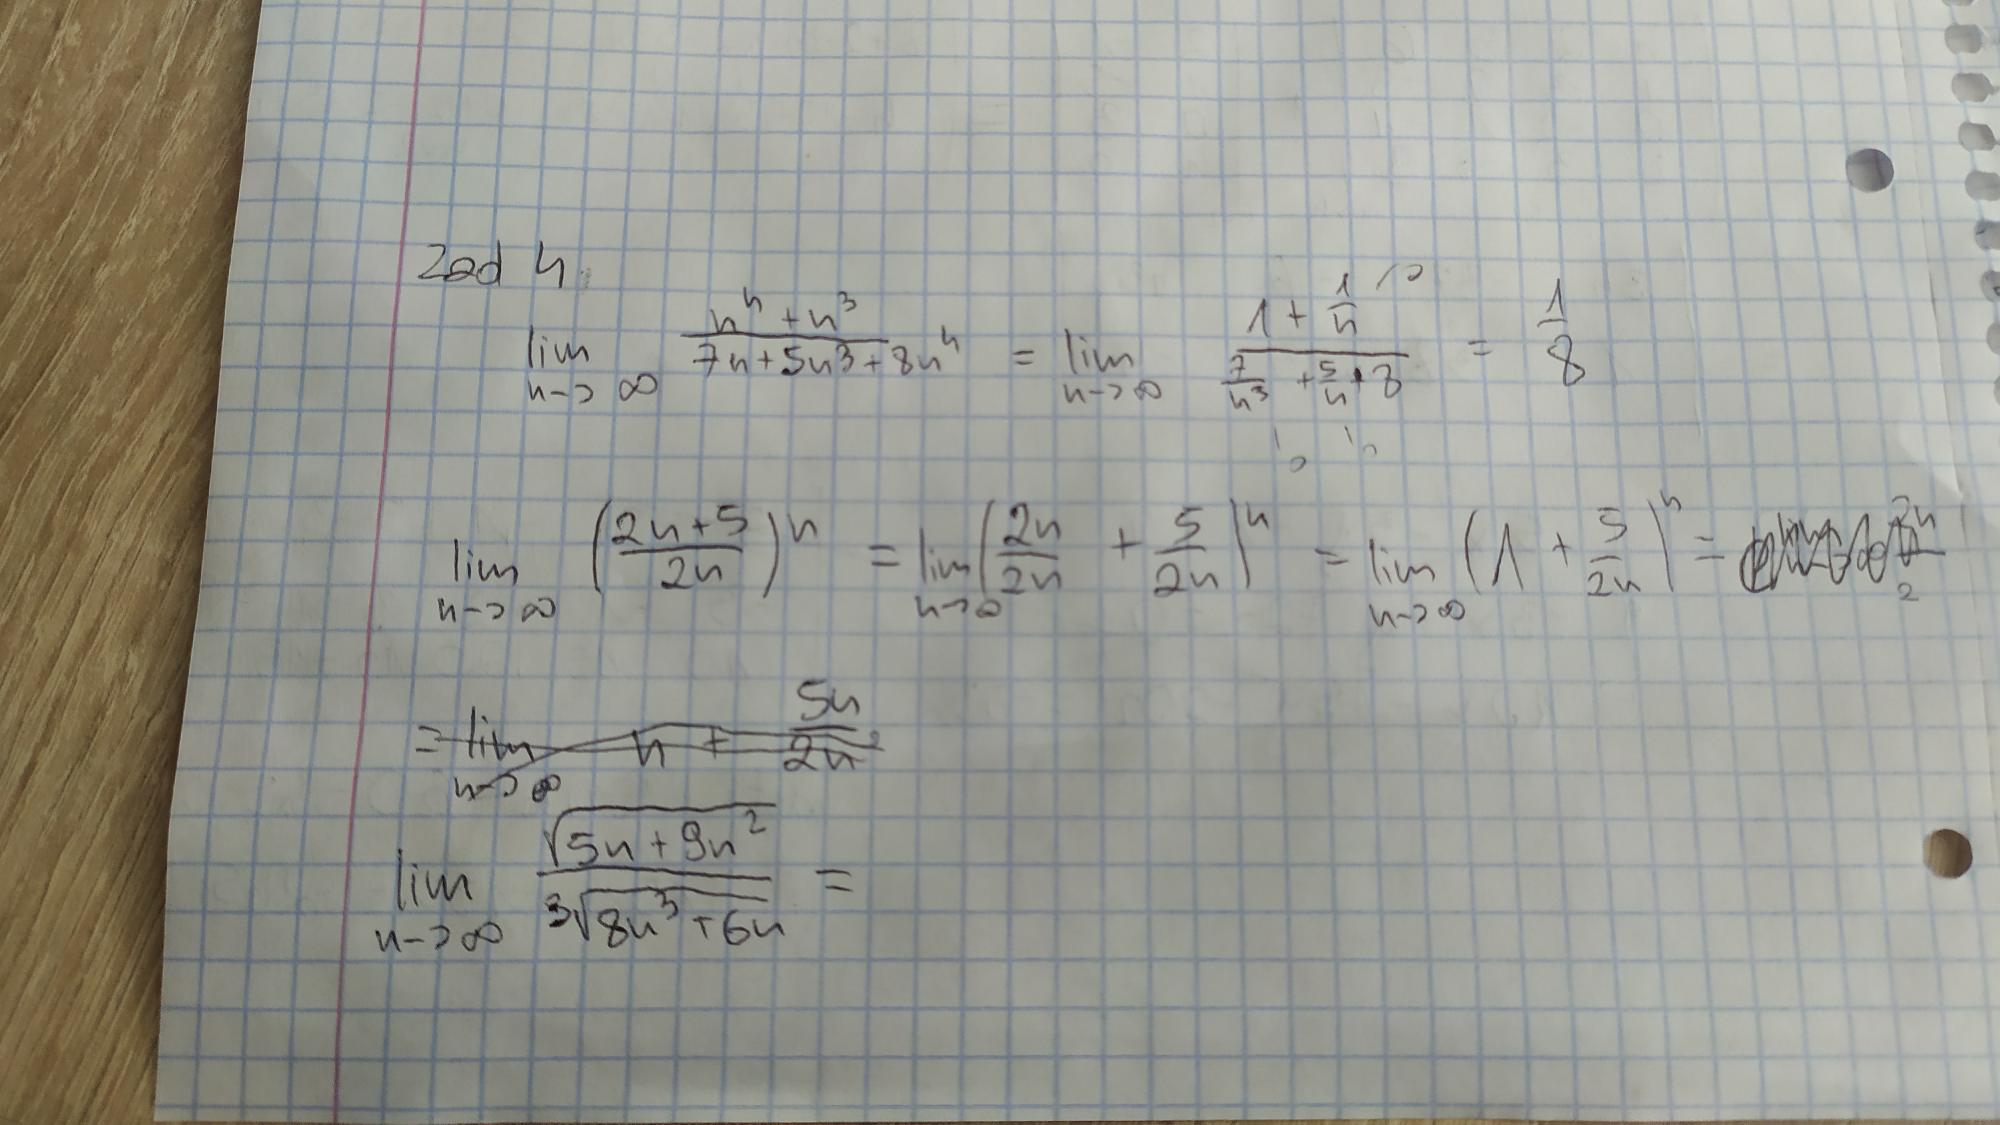 Zad 4.
lim n->∞ (n⁴ + n³)/(7n + 5n³ + 8n⁴) = lim n->∞ (1 + 1/n ->0)/(7/n³ + 5/n + 8) = 1/8
->0 ->0
lim n->∞ ((2n+5)/2n)ⁿ = lim n->∞ (2n/2n + 5/2n)ⁿ = lim n->∞ (1 + 5/2n)ⁿ =
= lim n->∞ n + 5n/2n
lim n->∞ √(5n + 9n²)/³√(8n³ + 6n) =